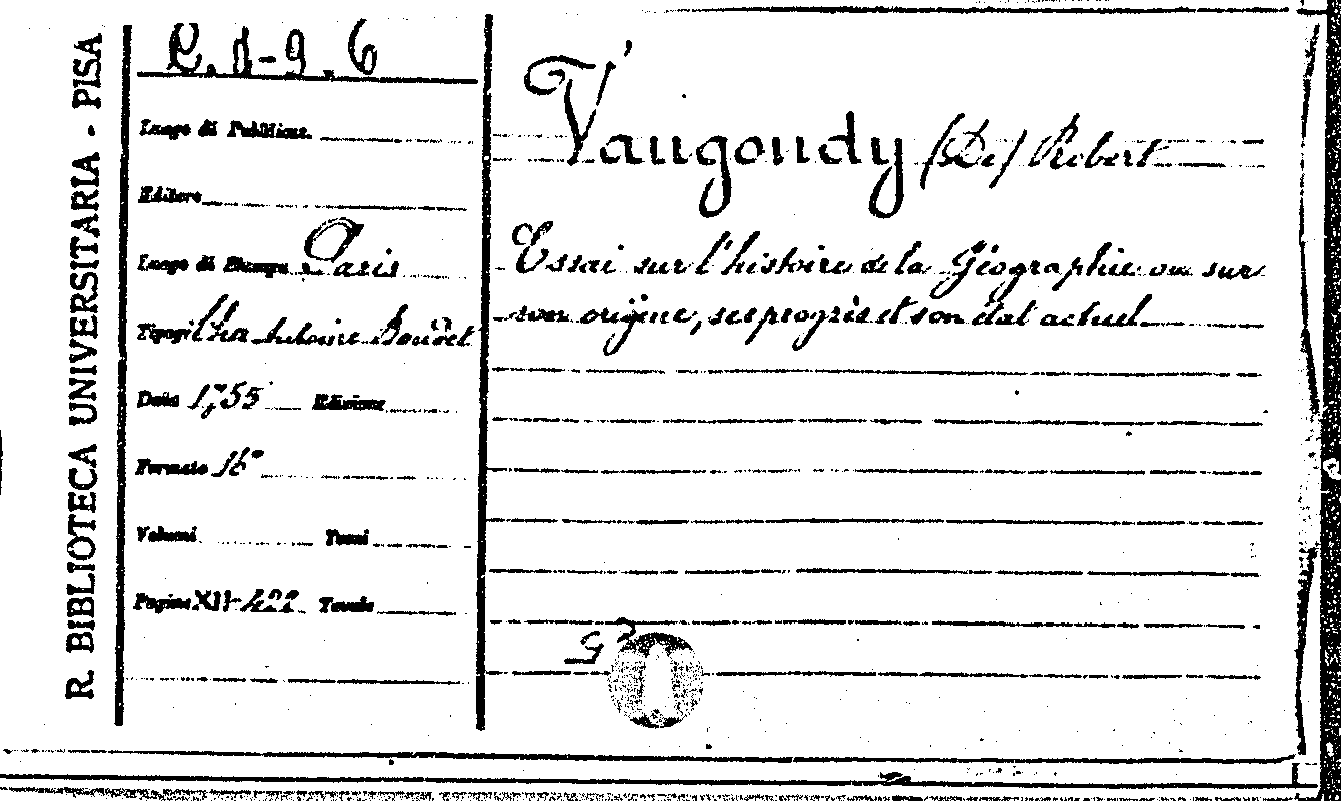 R. BIBLIOTECA UNIVERSITARIA - PISA
C. d-9.6
Luogo di Pubblicaz.
Editore
Luogo di Stampa Paris
Tipogr. Cha Antoine Boudet
Data 1755 Edizione
Formato 16°
Volumi Tomi
Pagine XII-422 Tavole
Vaugondy (De) Robert
Essai sur l'histoire de la Géographie ou sur
son origine, ses progrès et son état actuel